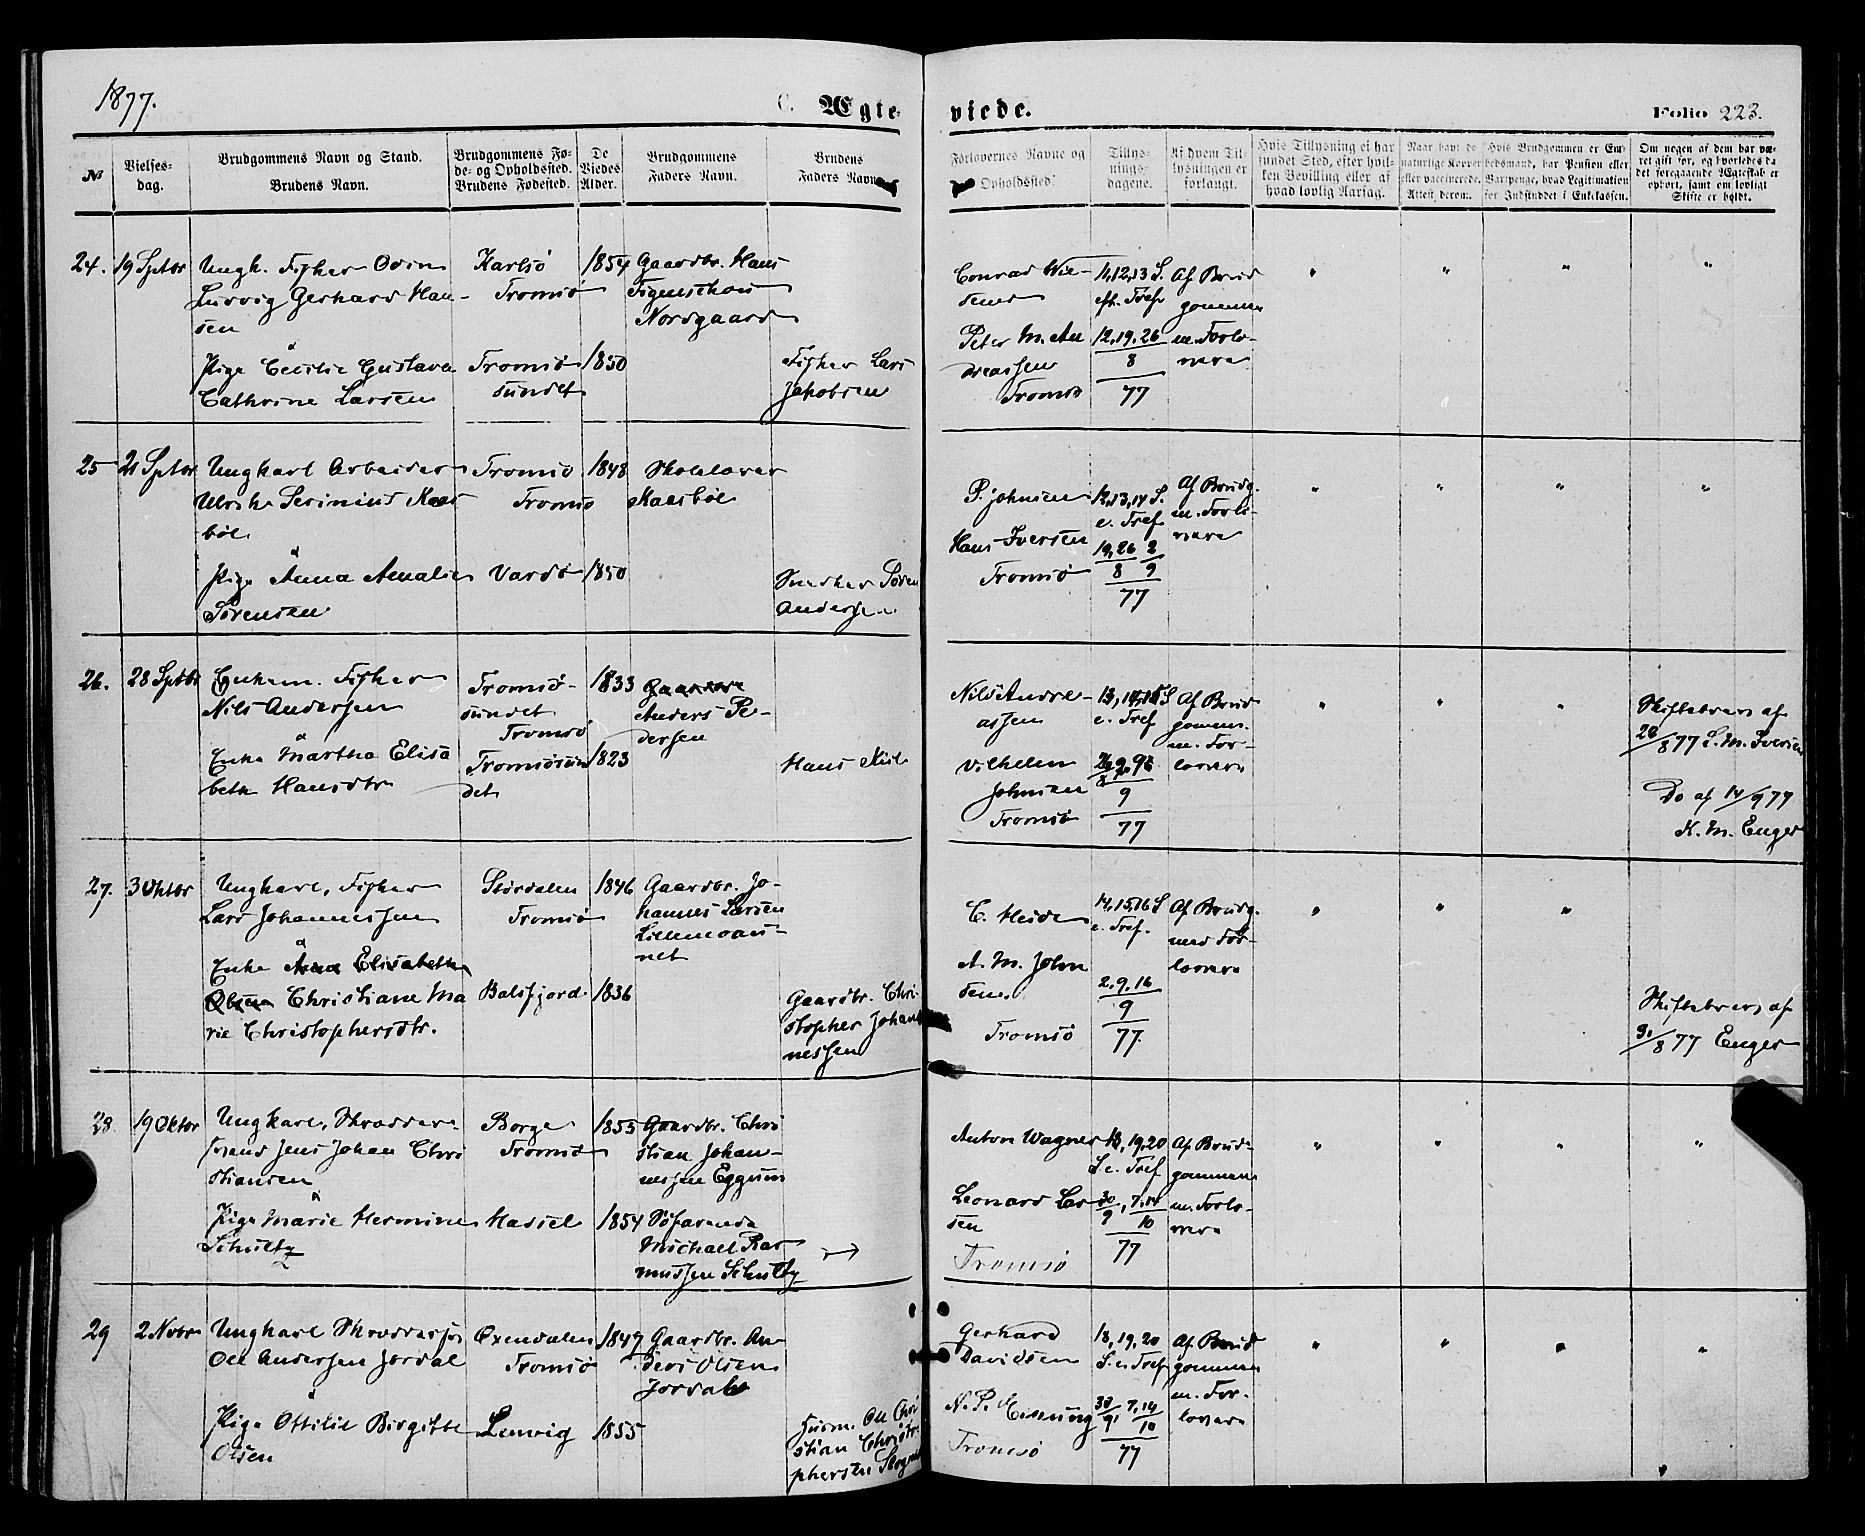 1877.
C. Ægteviede.
Folio 223.
№
Vielsesdag.
Brudgommens Navn og Stand.
Brudens Navn.
Brudgommens Føde- og Opholdssted.
Brudens Fødested.
De Viedes Alder.
Brudgommens Faders Navn.
Brudens Faders Navn
Forlovernes Navne og Opholdssted.
Tillysningsdagene.
Af hvem Tillysningen er forlangt.
Hvis Tillysning ei har fundet Sted, efter hvilken Bevilling eller af hvad lovlig Aarsag.
Naar havt de naturlige Kopper eller vaccinerede. Attest derom.
Hvis Brudgommen er Embedsmand, har Pension eller Vartpenge, hvad Legitimation for Indskuddet i Enkekassen.
Om nogen af dem har været gift før, og hvorledes da det foregaaende Ægteskab er ophørt, samt om lovligt Skifte er holdt.
24. 19 Sptbr
Ungk. Fisker Odin
Ludvig Gerhard Hansen
Karlsö
Tromsö
1854
Gaardbr. Hans
Figenschou
Nordgaard
&
Pige Cecilie Gustava
Cathrine Larsen
Tromsösundet
1850
Fisker Lars
Jakobsen
Conrad
Peter M. Andreassen
Tromsö
11, 12, 13 S.
eft. Tref.
12, 19, 26
8
77
Af Brudgommen
m. Forlovere
25 21 Sptbr
Ungkarl Arbeider
Ulrik Serinius Kaasböl
Tromsö
Tromsö
1848
Skolelærer
Kaasböl
&
Pige Anna Amalie
Sörensen
Vardö
1850
Snedker Sören
Andersen
P. Johnsen
Hans Iversen
Tromsö
12, 13, 14 S.
e. Tref
19, 26 2
8 9
77
Af Brudg.
m. Forlovere
26. 28 Sptbr
Enkem. Fisker
Nils Andersen
Tromsösundet
Tromsö
1833
Anders Pedersen
&
Enke Martha Elisabeth Hansdtr
Tromsösundet
1823
Hans
Nils Andreassen
Vilhelm
Johnsen
Tromsö
13, 14, 15 S
e. Tref
9
77
Af Brudgommen
m. Forlovere
Skiftebrev af
28/8 77 L. M. Iversen
Do af 14/9 77
K. M. Enger
27. 3 Oktbr
Ungkarl, Fisker
Lars Johannessen
Stördalen
Tromsö
1846
Gaardbr. Johannes Larsen
&
Enke Anna Elisabetha
Olsen Christiane Marie Christophersdtr.
Balsfjord
1836
Gaardbr. Christopher Johannessen
C. Heide
A. M. Johnsen.
Tromsö
14, 15, 16 S
e. Tref.
2, 9, 16
9
77.
Af Brudg.
med Forlovere
Skiftebrev af
31/8 77 Enger
28. 19 Oktbr
Ungkarl, Skræddersvend Jens Johan Christiansen
Borge
Tromsö
1855
Gaardbr. Christian Johannessen Eggum
&
Pige Marie Hermine
Schultz
Hassel
1854
Söfarende
Michael Rasmussen Schultz
Anton Wagner
Leonard Larsen
Tromsö
18, 19, 20
S. e. Tref
30/9, 7, 14/10
77
Af Brudgommen
m. Forlovere
29 2 Novbr
Ungkarl
Ole Andersen Jordal
Öxendalen
Tromsö
1847
Gaardbr. Anders Olsen
Jordal
&
Pige Ottilie Birgitte
Olsen
Lenvig
1855
Ole Christian Christophersen
Gerhard
Davidsen
N. P.
Tromsö
18, 19, 20
S. e. Tref
30/9, 7, 14/10
77
Af Brudgommen
m. Forlovere